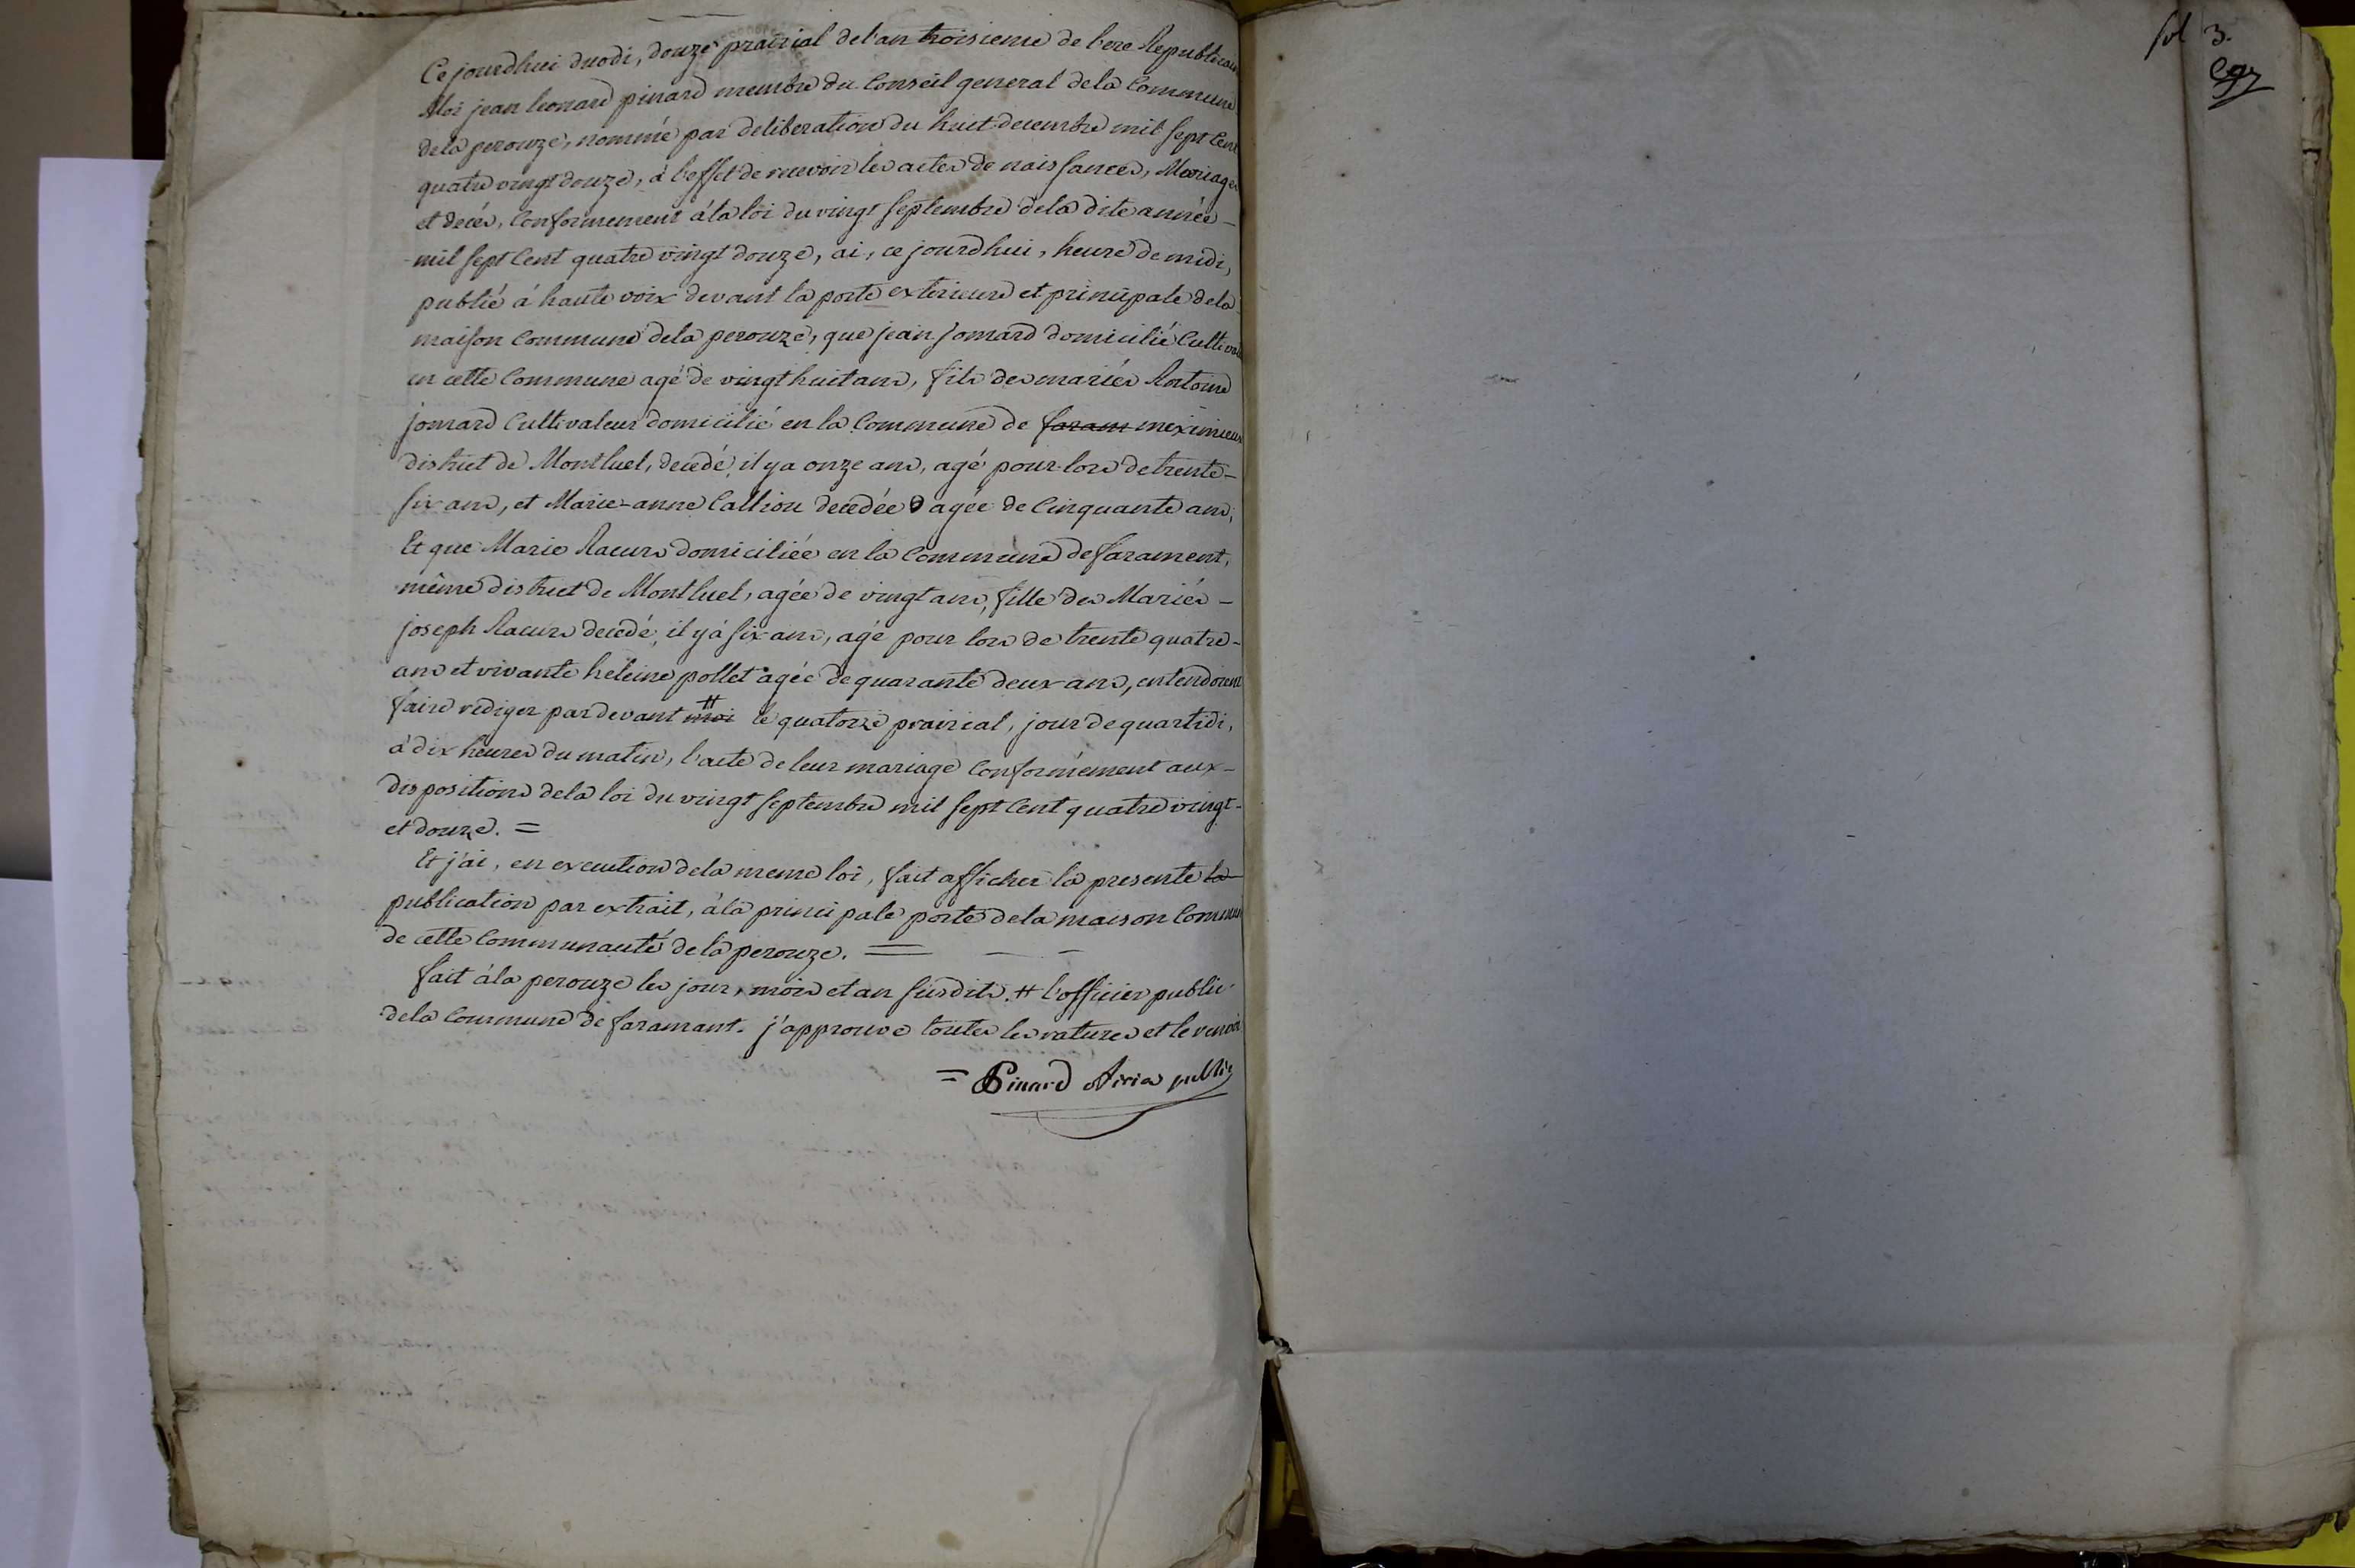 Ce jourdhui duodi, douze prairial de l'an troisieme de l'ere Republicain
Moi jean leonard pinard membre du Conseil general dela Commune
dela perouze, nommé par deliberation du huit decembre mil sept Cent
quatre vingt douze, à l'effet de recevoir les actes de naissances, Mariages
et decés, Conformement à la loi du vingt septembre dela dite année -
mil sept Cent quatre vingt douze, ai, ce jourdhui, heure de midi,
publié à haute voix devant la porte exterieure et principale dela
maison Commune dela perouze, que jean jomard domicilié Cultivat
en cette Commune agé de vingt huit ans, fils des mariés Antoine
jomard Cultivateur domicilié en la Commune de faram meximieux
district de Montluel, decedé, il y a onze ans, agé pour lors de trente -
six ans, et Marie-anne Calliou decedée agée de Cinquante ans;
Et que Marie Racurs domiciliée en la Commune de farament,
même district de Montluel, agée de vingt ans, fille des Mariés -
joseph Racurs decedé, il y à six ans, agé pour lors de trente quatre -
ans et vivante heleine pollet agée de quarante deux ans, entendoient
faire rediger par devant moi # le quatorze prairial, jour de quartidi,
à dix heures du matin, l'acte de leur mariage Conformément aux -
dispositions dela loi du vingt septembre mil sept Cent quatre vingt -
et douze. =
Et j'ai, en execution dela meme loi, fait afficher la presente la
publication par extrait, à la principale porte dela maison Commun
de cette Communauté dela perouze. =
fait à la perouze les jour, mois et an susdits. # l'officier public
dela Commune de faramant. j'approuve toutes les ratures et le renvoi
= Pinard public
fol 3.